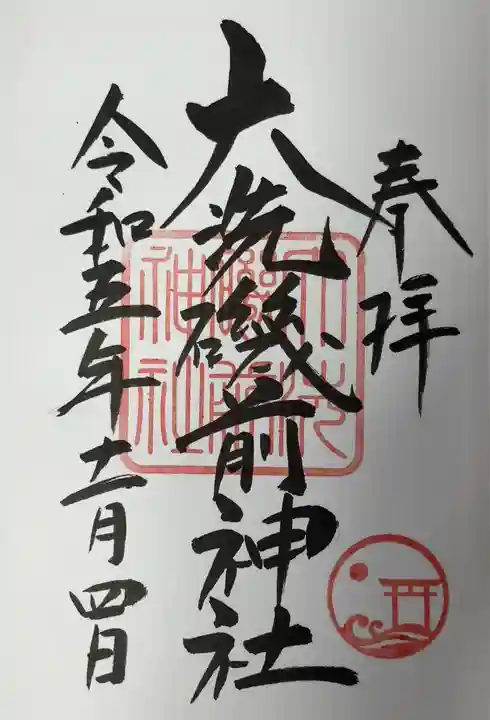 奉拝
大洗磯前神社
大洗磯前神社
令和五年十一月四日